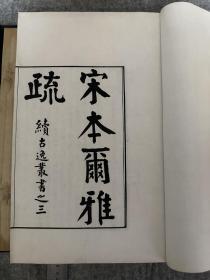 宋本爾雅
疏
續古逸叢書之三